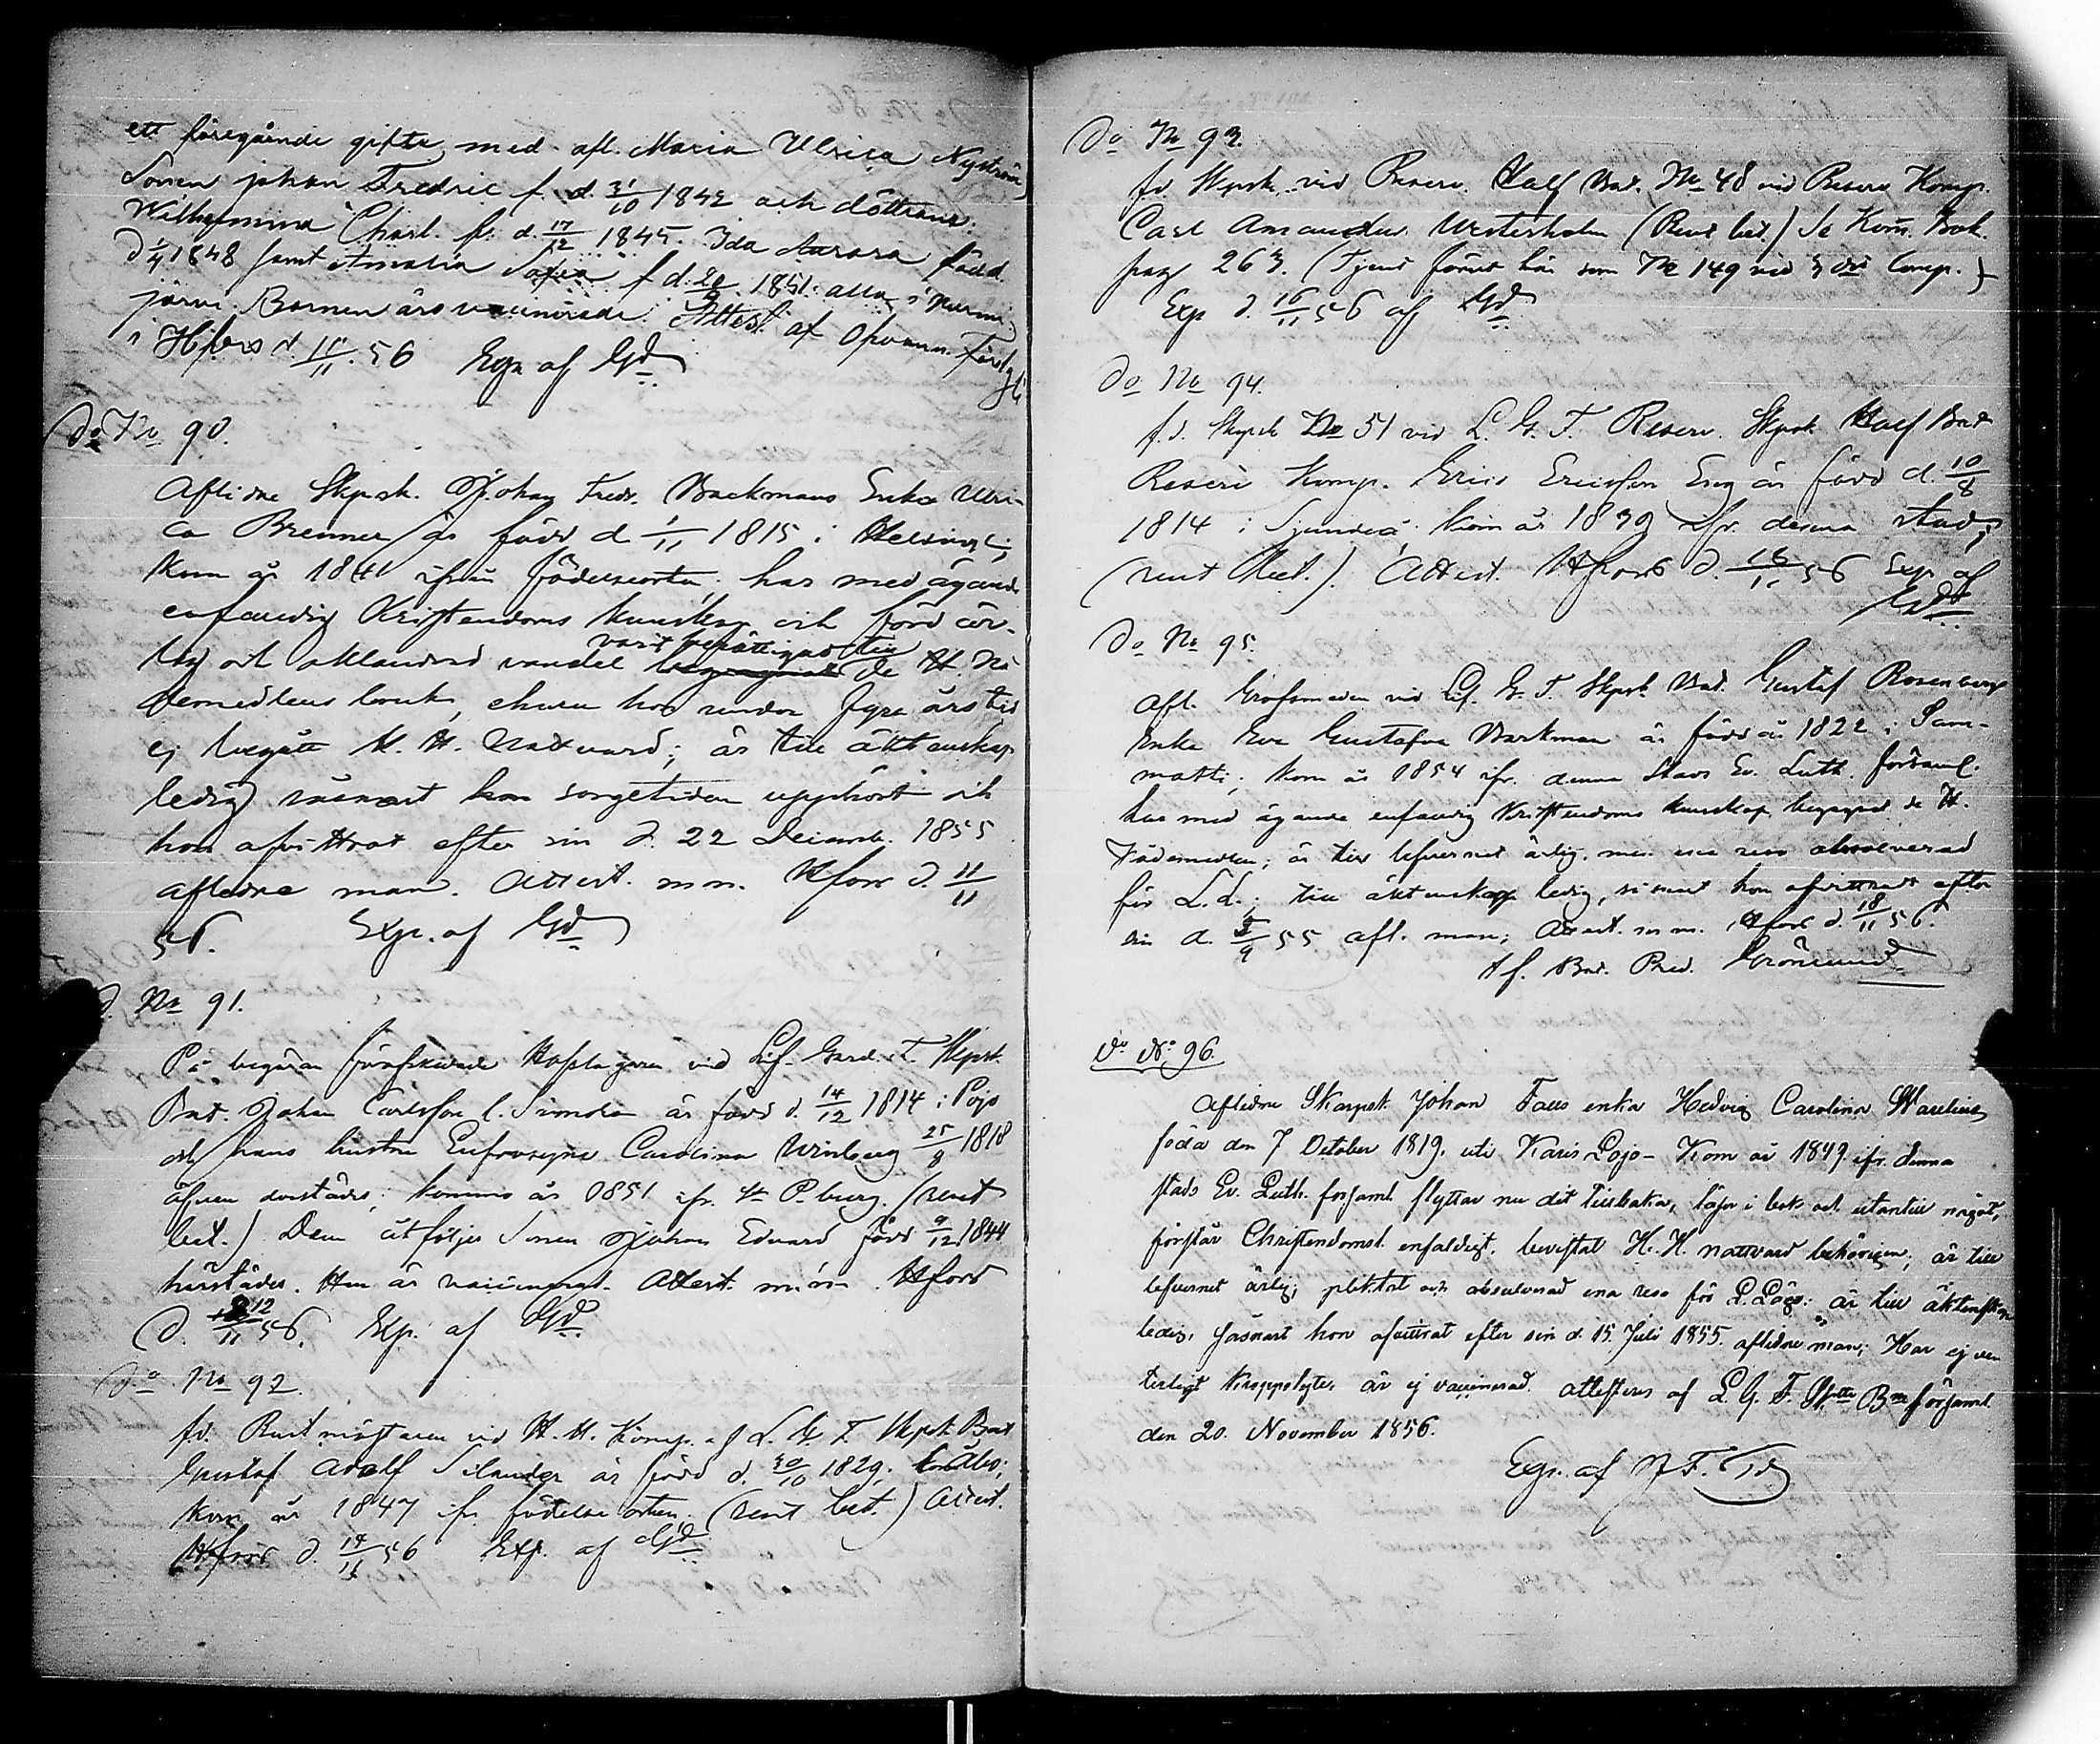 ett föregående gifte med afl. Maria Ulrica Nyström
Sonen johan Fredric f. d. 31/10 1842 och döttrarne
Wilhelmina Charl. f. d. 17/12 1845. Ida Aurora född
d 1/4 1848 samt Amalia Sofia f d. 20/9 1851. alla i Nurmi-
järvi. Barnen äro vaccinerade. Attest af
i Hfors d. 11/11 56 Exp. af Gd
Do No 90.
Aflidne Skpsk. Johan Fredr. Backmans Enka Ulri-
ca Brenner är född d. 1/11 1815 i Helsinge;
Kom år 1841 ifrån födelseorten; har med ägande
enfaldig Kristendoms kunskap och förd är-
lig och oklandrad vandel varit berättigad till de H. Nå-
demedlens bruk, ehuru hon under fyra års tid
ej begått H. H. Nattvard; är till äktenskap
ledig såsnart sorgetiden upphört och
hon afvittrat efter sin d. 22 Decemb. 1855
aflidne man. Attest. m.m. Hfors d. 11/11
56. Exp. af Gd
d. No 91.
På begäran förafskedade Hofslagaren vid Lif. Gard. F. Skpsk.
Bat. Johan Carlsson l. Simola är född d. 14/12 1814 i Pojo
och hans hustru Eufrosyne Carolina Winberg 25/8 1818
äfven därstädes; kommo år 1851 ifr. St P.burg. (rent
bet.) Dem åtföljer Sonen Johan Edvard född 9/12 1844
härstädes. Han är vaccinerad. Attest. m.m. Hfors
d. 12/11 56. Exp. af Gd
Do No 92.
f.d. Rustmästaren vid H. M. Komp. af L. G. F. Skpsk. Bat
Gustaf Adolf Silander är född d. 30/10 1829. Åbo;
kom år 1847 ifr. födelseorten. (rent bet.) Attest.
Hfors d. 14/11 56 Exp. af Gd
Do No 93.
fd Skpsk. vid Reserv. Half Bat. No 48 vid Reserv Komp.
Carl Amandus Westerholm (Rent bet.) Se Kom. Bok.
pag 263. (Tjent förut här som No 149 vid 3 die Comp.)
Exp d. 16/11 56 af Gd
Do No 94.
f.d. Skpsk No 51 vid L. G. F. Reserv. Skpsk. Half Bat
Reserv Komp. Eric Ericsson Eng är född d. 10/8
1814 i Sjundeå; kom år 1839 ifr. denna stad;
(rent Bet.) Attest. Hfors d. 16/11 56 Exp. af
Gd
Do No 95.
Afl. Grofsmeden vid Lif. G. F. Skpsk. Bat. Gustaf Rosenbergs
Enka Eva Gustafva Barkman är född år 1822 i Sam-
matti; kom år 1854 ifr. denna Stads Ev. Luth. församl.
har med ägande enfaldig Kristendoms kunskap begagnat de H.
Nådemedlen; är till lefvernet ärlig, men ena resa absolverad
för L.L.; till äktenskap ledig, såsnart hon afvittrat efter
sin d. 5/9 55 afl. man; Attest. m.m. Hfors d. 18/11 56.
Af. Bat. Pred. Grönlund
Do No. 96.
Aflidne Skarpsk. Johan Falls enka Hedvig Carolina
föda den 7 October 1819. uti Karis Lojo – Kom år 1849 ifr. denna
stads Ev. Luth. forsaml. flyttar nu dit tillbaka, läser i bok och utantill något,
förstår Christendomsl. enfaldigt. bevistat H. H. nattvard behörigen; är till
lefvernet ärlig; pliktat och absolverad ena resa för L. Läge: är till äktenskap
ledig, såsnart hon afvittrat efter sin d. 15. Juli 1855. aflidne man; Har ej ven-
terligt kroppslyte, är ej vaccinerad. attesteras af L. G. F. Bns församl.
den 20. November 1856.
Exp. af